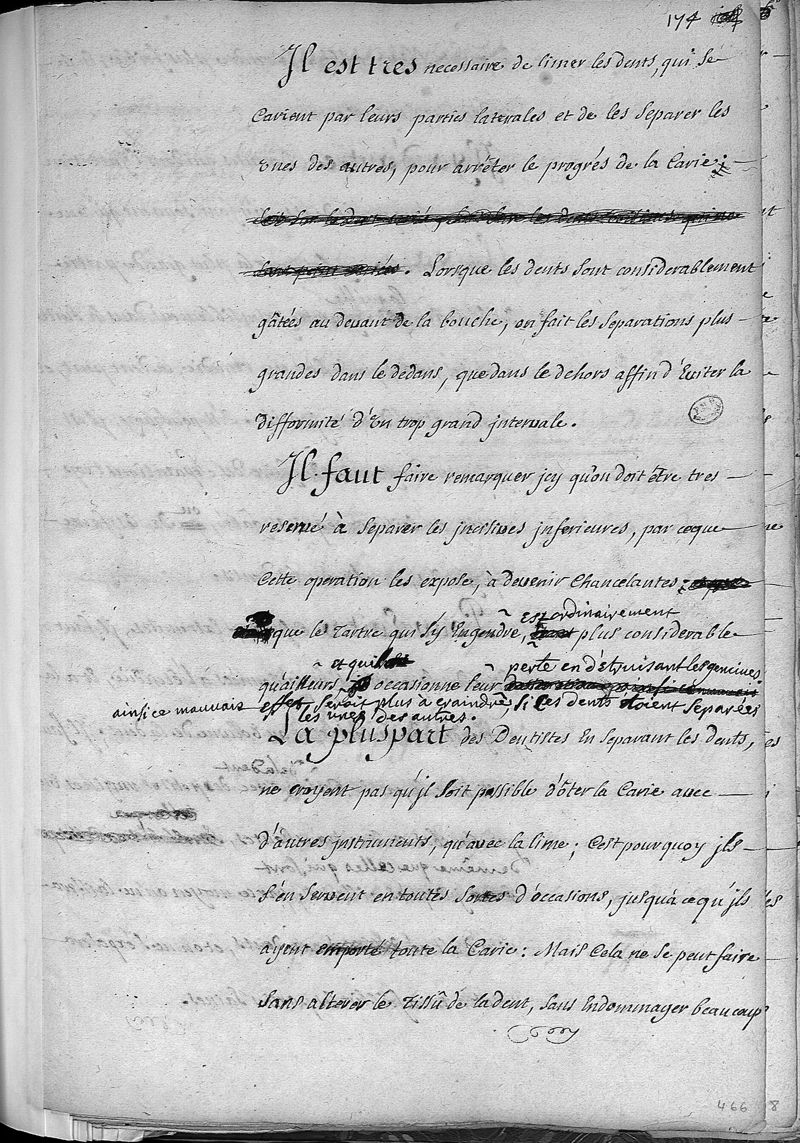 174
Il est tres necessaire de limer les dents, qui se
Carient par leurs parties laterales et de les separer les
Vnes des autres, pour arrêter le progrés de la Carie:
Lorsque les dents sont considerablement
gâtées au devant de la bouche, on fait les separations plus
grandes dans le dedans, que dans le dehors affin d'Eviter la
difformité d'Vn trop grand jntervale.
Il faut faire remarquer jcy qu'on doit être tres
reservé à separer les jncisives jnferieures, par ce que
Cette operation les expose, à devenir Chancelantes
est ordinairement
que le Tartre qui s'y Engendre, plus considerable
et qu'il
perte en détruisant les gencives
qu'ailleurs occasionne leur
ainsi ce mauvais effet, seroit plus a craindre, si les dents étoient separées
les unes des autres.
La pluspart des Dentistes En separant les dents,
ne croyent pas qu'jl soit possible d'ôter la Carie avec
d'autres jnstruments, qu'avec la lime; C'est pourquoy jls
s'en servent en toutes sortes d'occasions, jusqu'à ce qu'jls
ayent emporté toute la Carie: Mais Cela ne se peut faire
sans alterer le Tissû de la dent, sans Endommager beaucoup
466 8